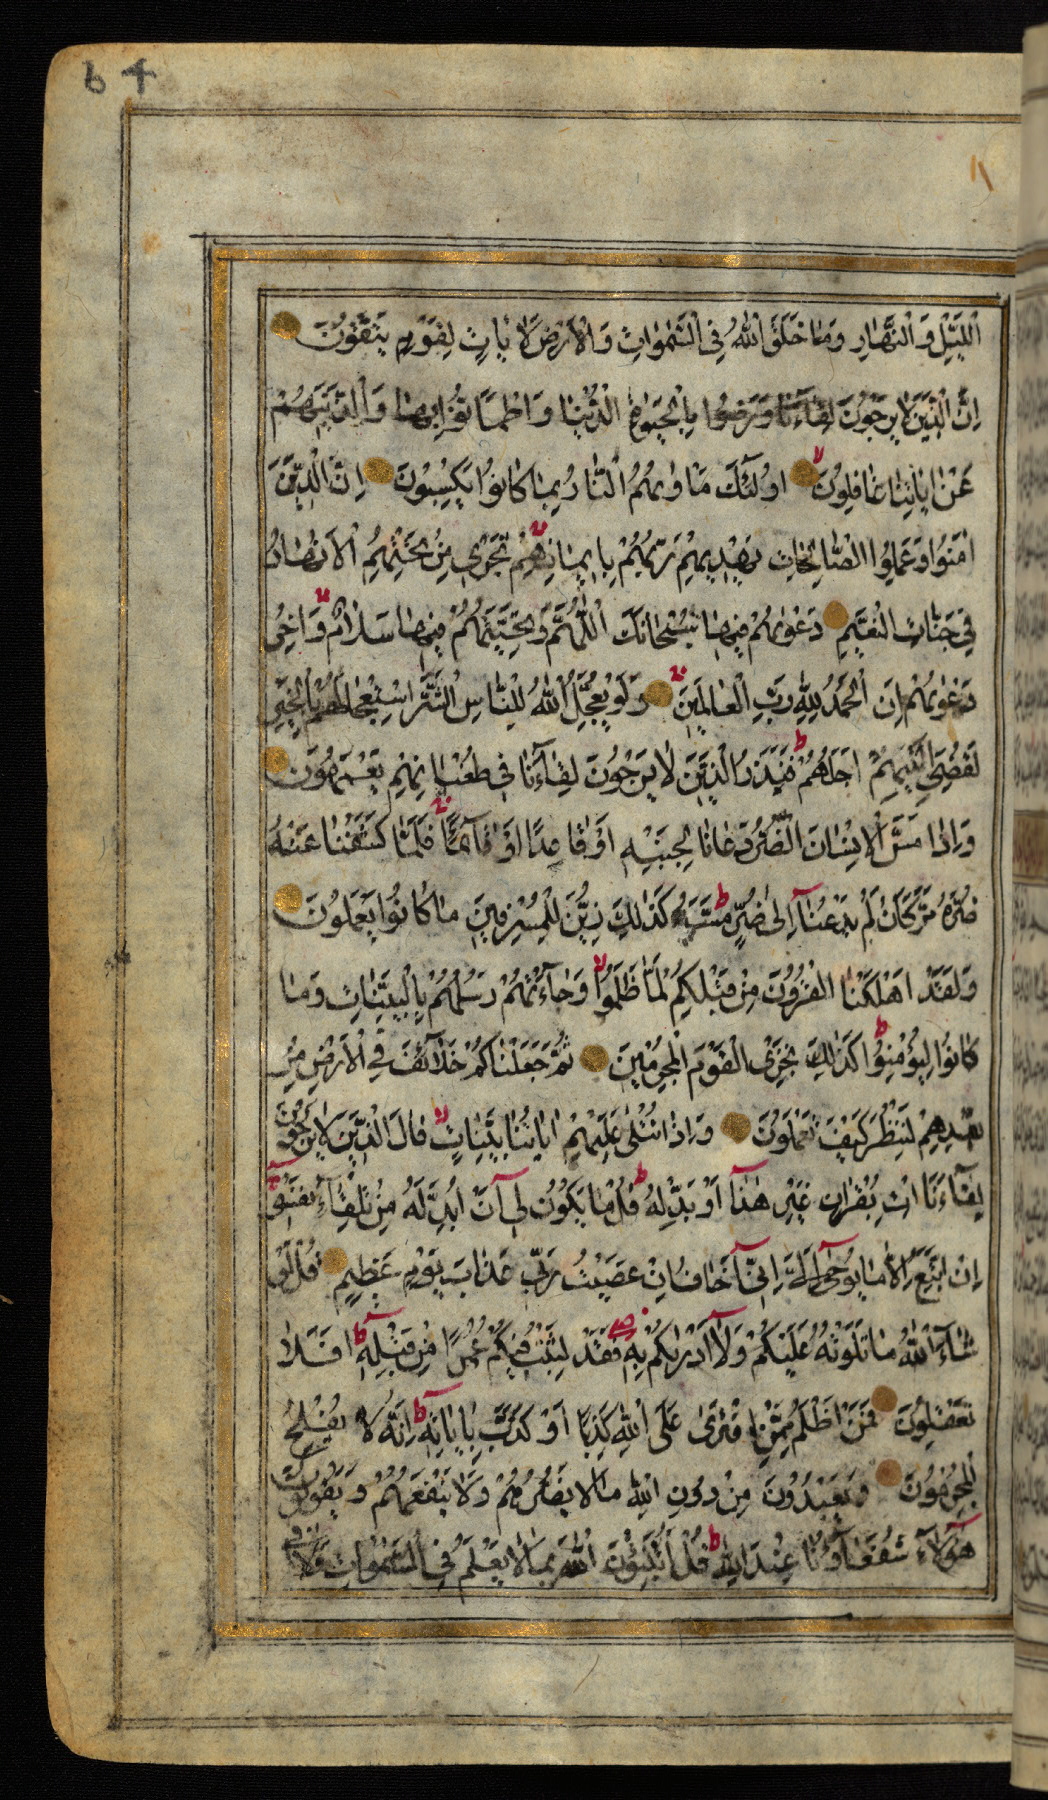 b 4
اللَّيْلِ وَالنَّهَارِ وَمَا خَلَقَ اللهُ فِي السَّمٰوَاتِ وَالْاَرْضِ لَاٰيَاتٍ لِقَوْمٍ يَتَّقُونَ
اِنَّ الَّذِينَ لَا يَرْجُونَ لِقَآءَنَا وَرَضُوا بِالْحَيٰوةِ الدُّنْيَا وَاطْمَاَنُّوا بِهَا وَالَّذِينَ هُمْ
عَنْ اٰيَاتِنَا غَافِلُونَ لا اُولٰئِكَ مَاْوٰيهُمُ النَّارُ بِمَا كَانُوا يَكْسِبُونَ اِنَّ الَّذِينَ
اٰمَنُوا وَعَمِلُوا الصَّالِحَاتِ يَهْدِيهِمْ رَبُّهُمْ بِاِيمَانِهِمْ تَجْرِي مِنْ تَحْتِهِمُ الْاَنْهَارُ
فِي جَنَّاتِ النَّعِيمِ دَعْوٰيهُمْ فِيهَا سُبْحَانَكَ اللّٰهُمَّ وَتَحِيَّتُهُمْ فِيهَا سَلَامٌ وَاٰخِرُ
دَعْوٰيهُمْ اَنِ الْحَمْدُ لِلّٰهِ رَبِّ الْعَالَمِينَ وَلَوْ يُعَجِّلُ اللهُ لِلنَّاسِ الشَّرَّ اسْتِعْجَالَهُمْ بِالْخَيْرِ
لَقُضِيَ اِلَيْهِمْ اَجَلُهُمْ ط فَنَذَرُ الَّذِينَ لَا يَرْجُونَ لِقَآءَنَا فِي طُغْيَانِهِمْ يَعْمَهُونَ
وَاِذَا مَسَّ الْاِنْسَانَ الضُّرُّ دَعَانَا لِجَنْبِهِ اَوْ قَاعِدًا اَوْ قَآئِمًا فَلَمَّا كَشَفْنَا عَنْهُ
ضُرَّهُ مَرَّ كَاَنْ لَمْ يَدْعُنَآ اِلٰى ضُرٍّ مَسَّهُ ط كَذٰلِكَ زُيِّنَ لِلْمُسْرِفِينَ مَا كَانُوا يَعْمَلُونَ
وَلَقَدْ اَهْلَكْنَا الْقُرُونَ مِنْ قَبْلِكُمْ لَمَّا ظَلَمُوا لا وَجَآءَتْهُمْ رُسُلُهُمْ بِالْبَيِّنَاتِ وَمَا
كَانُوا لِيُؤْمِنُوا ط كَذٰلِكَ نَجْزِي الْقَوْمَ الْمُجْرِمِينَ ثُمَّ جَعَلْنَاكُمْ خَلَآئِفَ فِي الْاَرْضِ مِنْ
بَعْدِهِمْ لِنَنْظُرَ كَيْفَ تَعْمَلُونَ وَاِذَا تُتْلٰى عَلَيْهِمْ اٰيَاتُنَا بَيِّنَاتٍ لا قَالَ الَّذِينَ لَا يَرْجُونَ
لِقَآءَنَا ائْتِ بِقُرْاٰنٍ غَيْرِ هٰذَآ اَوْ بَدِّلْهُ ط قُلْ مَا يَكُونُ لِيٓ اَنْ اُبَدِّلَهُ مِنْ تِلْقَآئِ نَفْسِي
اِنْ اَتَّبِعُ اِلَّا مَا يُوحٰٓى اِلَيَّ اِنِّيٓ اَخَافُ اِنْ عَصَيْتُ رَبِّي عَذَابَ يَوْمٍ عَظِيمٍ قُلْ لَوْ
شَآءَ اللهُ مَا تَلَوْتُهُ عَلَيْكُمْ وَلَآ اَدْرٰيكُمْ بِهِ فَقَدْ لَبِثْتُ فِيكُمْ عُمُرًا مِنْ قَبْلِهِ ط اَفَلَا
تَعْقِلُونَ فَمَنْ اَظْلَمُ مِمَّنِ افْتَرٰى عَلَى اللهِ كَذِبًا اَوْ كَذَّبَ بِاٰيَاتِهِ ط اِنَّهُ لَا يُفْلِحُ
الْمُجْرِمُونَ وَيَعْبُدُونَ مِنْ دُونِ اللهِ مَا لَا يَضُرُّهُمْ وَلَا يَنْفَعُهُمْ وَيَقُولُونَ
هٰٓؤُلَآءِ شُفَعَآؤُنَا عِنْدَ اللهِ ط قُلْ اَتُنَبِّئُونَ اللهَ بِمَا لَا يَعْلَمُ فِي السَّمٰوَاتِ وَلَا فِي